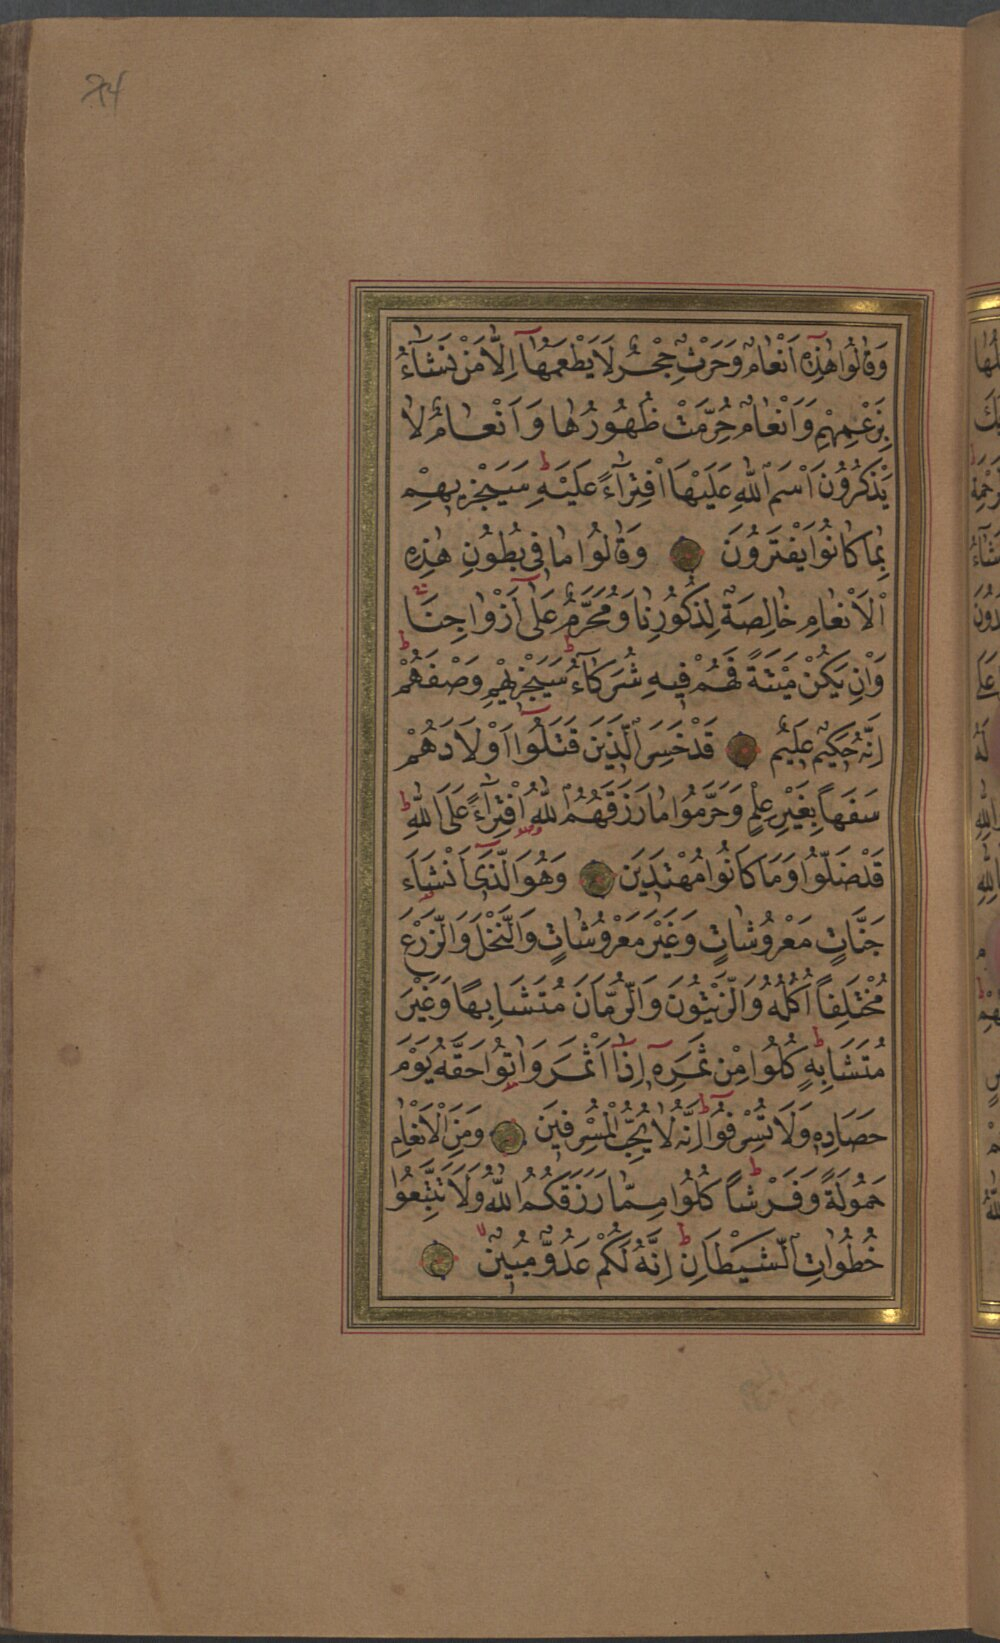 74
وَقَالُوا هٰذِهِ اَنْعَامٌ وَحَرْثٌ حِجْرٌ لَا يَطْعَمُهَٓا اِلَّا مَنْ نَشَٓاءُ
بِزَعْمِهِمْ وَاَنْعَامٌ حُرِّمَتْ ظُهُورُهَا وَاَنْعَامٌ لَا
يَذْكُرُونَ اسْمَ اللّٰهِ عَلَيْهَا افْتِرَٓاءً عَلَيْهِ سَيَجْزِيهِمْ
بِمَا كَانُوا يَفْتَرُونَ وَقَالُوا مَا فِى بُطُونِ هٰذِهِ
الْاَنْعَامِ خَالِصَةٌ لِذُكُورِنَا وَمُحَرَّمٌ عَلٰٓى اَزْوَاجِنَا
وَاِنْ يَكُنْ مَيْتَةً فَهُمْ فِيهِ شُرَكَٓاءُ سَيَجْزِيهِمْ وَصْفَهُمْ
اِنَّهُ حَكِيمٌ عَلِيمٌ قَدْ خَسِرَ الَّذِينَ قَتَلُٓوا اَوْلَادَهُمْ
سَفَهًا بِغَيْرِ عِلْمٍ وَحَرَّمُوا مَا رَزَقَهُمُ اللّٰهُ افْتِرَٓاءً عَلَى اللّٰهِ
قَدْ ضَلُّوا وَمَا كَانُوا مُهْتَدِينَ وَهُوَ الَّذِٓى اَنْشَاَ
جَنَّاتٍ مَعْرُوشَاتٍ وَغَيْرَ مَعْرُوشَاتٍ وَالنَّخْلَ وَالزَّرْعَ
مُخْتَلِفًا اُكُلُهُ وَالزَّيْتُونَ وَالرُّمَّانَ مُتَشَابِهًا وَغَيْرَ
مُتَشَابِهٍ كُلُوا مِنْ ثَمَرِهِٓ اِذَٓا اَثْمَرَ وَاٰتُوا حَقَّهُ يَوْمَ
حَصَادِهِ وَلَا تُسْرِفُٓوا اِنَّهُ لَا يُحِبُّ الْمُسْرِفِينَ وَمِنَ الْاَنْعَامِ
حَمُولَةً وَفَرْشًا كُلُوا مِمَّا رَزَقَكُمُ اللّٰهُ وَلَا تَتَّبِعُوا
خُطُوَاتِ الشَّيْطَانِ اِنَّهُ لَكُمْ عَدُوٌّ مُبِينٌ